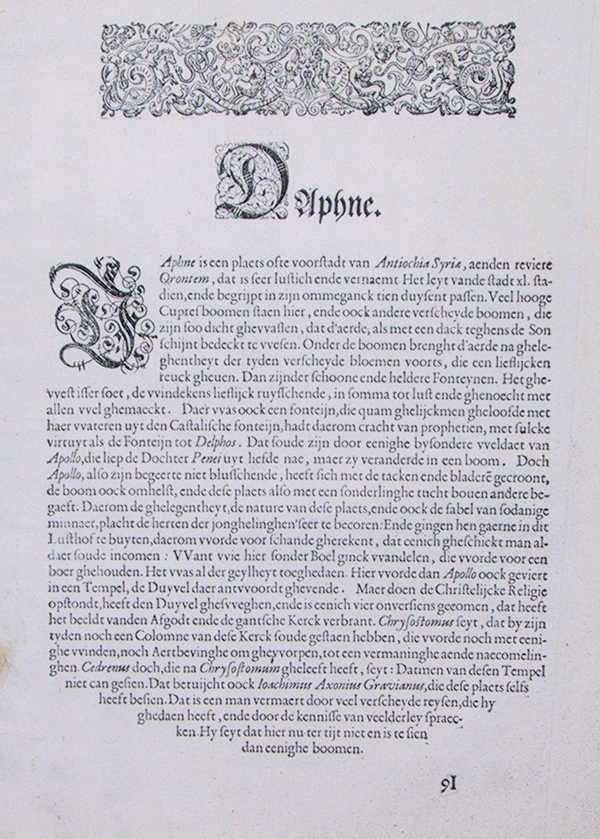 DAphne.
DAphne is een plaets ofte voorstadt van Antiochia Syriæ, aenden reviere
Orontem, dat is seer lustich ende vernaemt Het leyt vande stadt xl. sta-
dien, ende begrijpt in zijn ommeganck tien duysent passen. Veel hooge
Cupresboomen staen hier, ende oock andere verscheyde boomen, die
zijn soo dicht ghevvassen, dat d'aerde, als met een dack teghens de Son
schijnt bedeckt te vvesen. Onder de boomen brenght d'aerde na ghele-
ghentheyt der tyden verscheyde bloemen voorts, die een lieflijcken
reuck gheuen. Dan zijnder schoone ende heldere Fonteynen. Het ghe-
vvest isser soet, de vvindekens lieflijck ruysschende, in somma tot lust ende ghenoecht met
allen vvel ghemaeckt. Daer vvas oock een fonteijn, die quam ghelijckmen gheloofde met
haer vvateren uyt den Castalische fonteijn, hadt daerom cracht van prophetien, met sulcke
virtuyt als de Fonteijn tot Delphos. Dat soude zijn door eenighe bysondere vveldaet van
Apollo, die liep de Dochter Penei uyt liefde nae, maer zy veranderde in een boom. Doch
Apollo, also zijn begeerte niet blusschende, heeft sich met de tacken ende bladerē gecroont,
de boom oock omhelst, ende dese plaets also met een sonderlinghe tucht bouen andere be-
gaeft. Daerom de ghelegentheyt, de nature van dese plaets, ende oock de fabel van sodanige
minnaer, placht de herten der jonghelinghen seer te becoren: Ende gingen hen gaerne in dit
Lusthof te buyten, daerom vvorde voor schande gherekent, dat eenich gheschickt man al-
daer soude incomen: VVant vvie hier sonder Boel ginck vvandelen, die vvorde voor een
boer ghehouden. Het vvas al der geylheyt toeghedaen. Hier vvorde dan Apollo oock geviert
in een Tempel, de Duyvel daer antvvoordt ghevende. Maer doen de Christelijcke Religie
opstondt, heeft den Duyvel ghesvveghen, ende is eenich vier onversiens gecomen, dat heeft
het beeldt vanden Afgodt ende de gantsche Kerck verbrant. Chrysostomus seyt, dat by zijn
tyden noch een Colomne van dese Kerck soude gestaen hebben, die vvorde noch met eeni-
ghe vvinden, noch Aertbevinghe om gheyvorpen, tot een vermaninghe aende naecomelin-
ghen. Cedrenus doch, die na Chrysostomum gheleeft heeft, seyt: Datmen van desen Tempel
niet can gesien. Dat betuijcht oock Ioachimus Axonius Gravianus, die dese plaets selfs
heeft besien. Dat is een man vermaert door veel verscheyde reysen, die hy
ghedaen heeft, ende door de kennisse van veelderley spraec-
ken. Hy seyt dat hier nu ter tijt niet en is te sien
dan eenighe boomen.
91